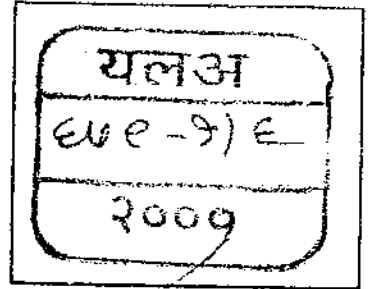 यलअ
६७९-१) ६
२००१